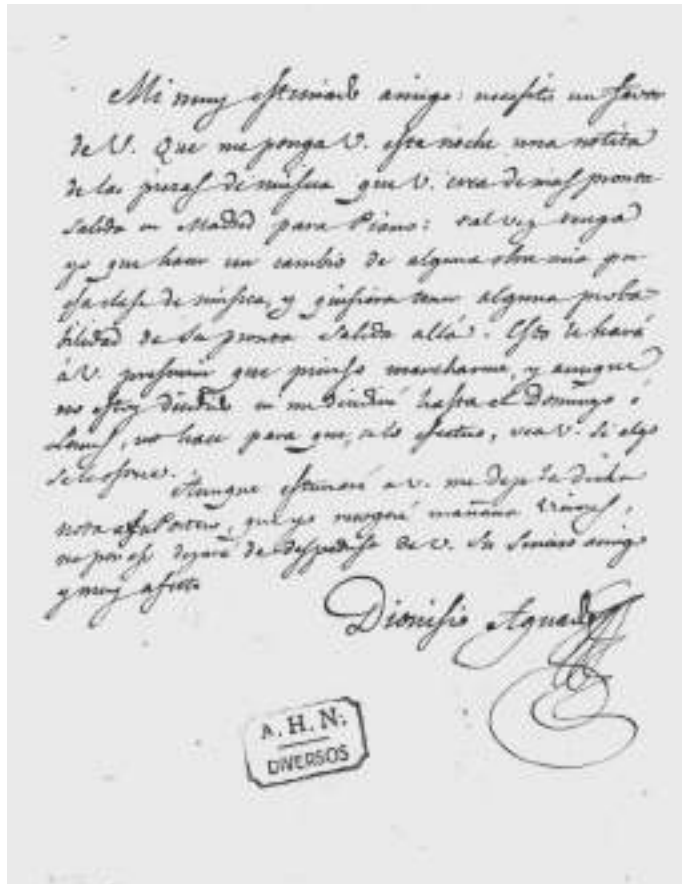 Mi muy estimado amigo: necesito un favor
de V. Que me ponga V. esta noche una notita
de las piezas de música que V. crea de mas pronta
salida en Madrid para Piano: tal vez tenga
yo que hacer un cambio de alguna obra mia por
esa clase de música, y quisiera tener alguna proba-
bilidad de su pronta salida allá. Esto le hará
á V. presumir que pienso marcharme, y aunque
no estoy decidido ni me decidiré hasta el Domingo ó
Lunes, no hace para que, si lo efectuo, vea V. si algo
se le ofrece.
Aunque estimaré á V. me deje la dicha
nota á su Portero, que yo recogeré mañana Viernes,
no por eso dejaré de despedirse de V. su sincero amigo
y muy afecto
Dionisio Aguado
A. H. N.
DIVERSOS